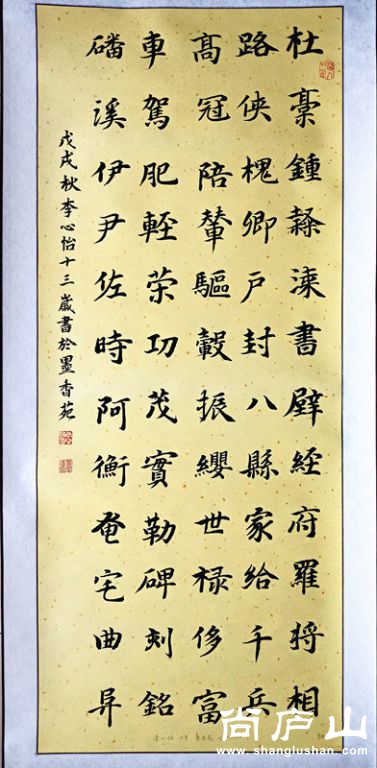 杜稾鍾隸漆書壁經府羅將相
路俠槐卿戶封八縣家給千兵
高冠陪輦驅轂振纓世祿侈富
車駕肥輕策功茂實勒碑刻銘
磻溪伊尹佐時阿衡奄宅曲阜
戊戌秋李心怡十三歲書於墨香苑
尚庐山
www.shanglushan.com